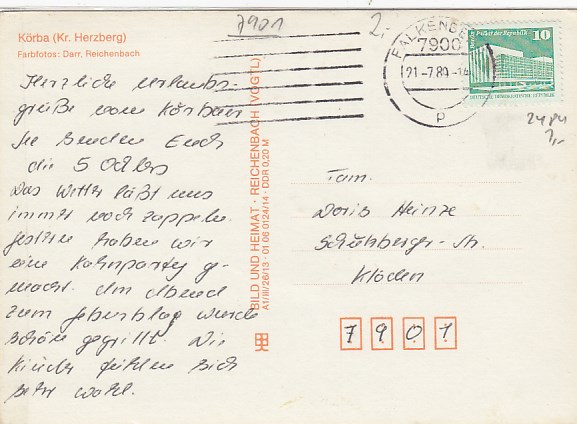 7901
2,
Körba (Kr. Herzberg)
Farbfotos: Darr, Reichenbach
FALKENBERG
7900
21.-7.80.-16
p
Berlin, Palast der Republik
10
DEUTSCHE DEMOKRATISCHE REPUBLIK
2484
1,-
Herzliche Urlaubs-
grüße vom Körbaer
See senden Euch
die 5
Das Wetter läßt uns
immer noch zappeln.
Gestern haben wir
eine Kahnparty ge-
macht. Am Abend
zum Geburtstag wurde
schön gegrillt. Die
Kinder fühlen sich
sehr wohl.
BILD UND HEIMAT · REICHENBACH (VOGTL)
A1/III/26/13 · 01 06 0124/14 · DDR 0,20 M
Fam.
Doris Heinze
Schulberger-Str.
Klöden
7901